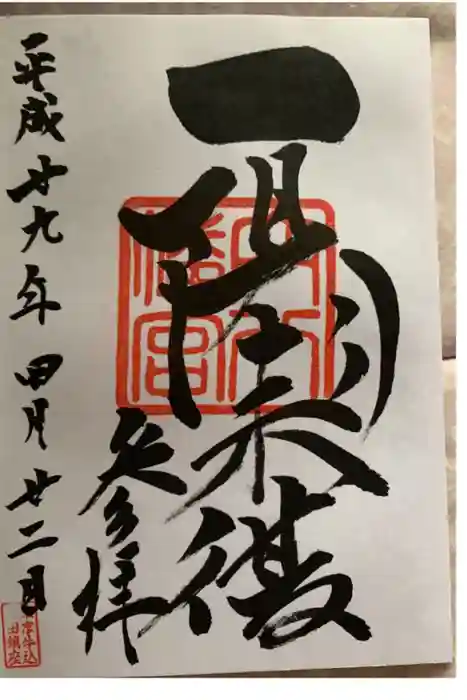 一陽来復
穴八
幡宮
参拝
平成廿九年四月廿二日